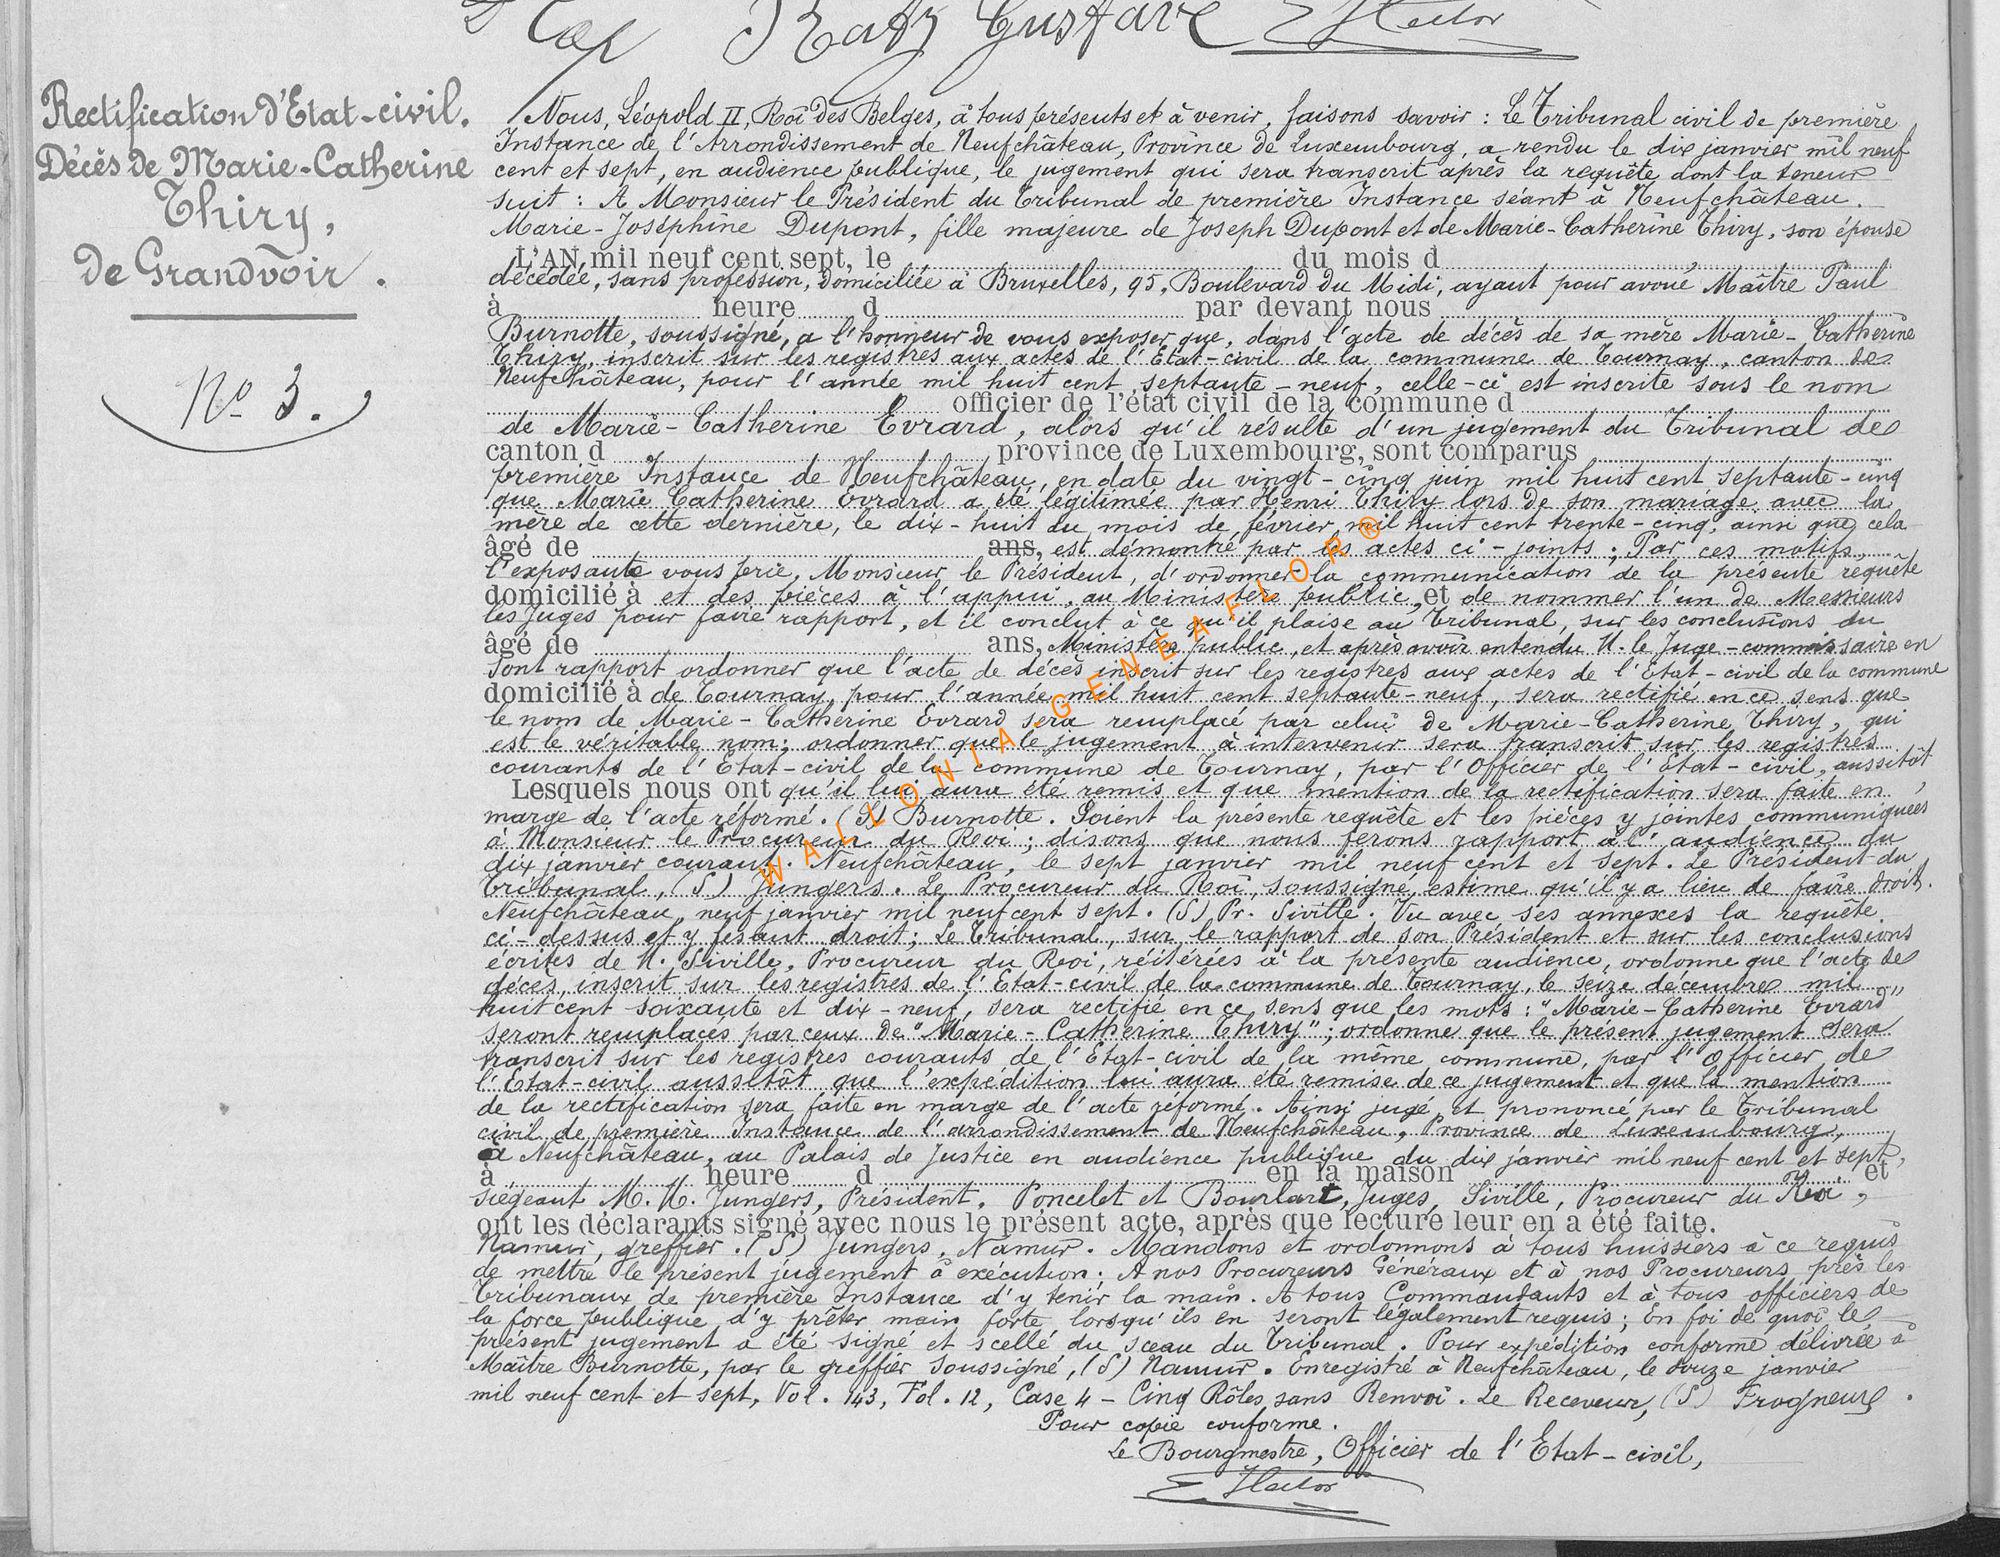 Rectification d'Etat-civil.
Décès de Marie-Catherine
Thiry,
de Grandvoir.
No 3.
Gustave EHector
Nous, Léopold II, Roi des Belges, à tous présents et à venir, faisons savoir : Le Tribunal civil de première
Instance de l'Arrondissement de Neufchâteau, Province de Luxembourg, a rendu le dix janvier mil neuf
cent et sept, en audience publique, le jugement qui sera transcrit après la requête dont la teneur
suit : A Monsieur le Président du Tribunal de première Instance séant à Neufchâteau.
Marie-Joséphine Dupont, fille majeure de Joseph Dupont et de Marie-Catherine Thiry, son épouse
L'AN mil neuf cent sept, le du mois d
décédée, sans profession, domiciliée à Bruxelles, 95, Boulevard du Midi, ayant pour avoué, Maître Paul
à heure d par devant nous
Burnotte, soussigné, a l'honneur de vous exposer que, dans l'acte de décès de sa mère Marie-Catherine
Thiry, inscrit sur les registres aux actes de l'Etat-civil de la commune de Tournay, canton de
Neufchâteau, pour l'année mil huit cent septante-neuf, celle-ci est inscrite sous le nom
officier de l'état civil de la commune d
de Marie-Catherine Evrard, alors qu'il résulte d'un jugement du Tribunal de
canton d province de Luxembourg, sont comparus
première Instance de Neufchâteau, en date du vingt-cinq juin mil huit cent septante-cinq
que Marie Catherine Evrard a été légitimée par Henri Thiry lors de son mariage avec la
mère de cette dernière, le dix-huit du mois de février mil huit cent trente-cinq, ainsi que cela
âgé de ans, est démontré par les actes ci-joints ; Par ces motifs,
l'exposante vous prie, Monsieur le Président, d'ordonner la communication de la présente requête
domicilié à et des pièces à l'appui, au Ministère public, et de nommer l'un de Messieurs
les Juges pour faire rapport, et il conclut à ce qu'il plaise au Tribunal, sur les conclusions du
âgé de ans, Ministère public, et après avoir entendu M. le Juge-commissaire en
sont rapport ordonner que l'acte de décès inscrit sur les registres aux actes de l'Etat-civil de la commune
domicilié à de Tournay, pour l'année mil huit cent septante-neuf, sera rectifié en ce sens que
le nom de Marie-Catherine Evrard sera remplacé par celui de Marie-Catherine Thiry, qui
est le véritable nom ; ordonner que le jugement à intervenir sera transcrit sur les registres
courants de l'Etat-civil de la commune de Tournay, par l'Officier de l'Etat-civil, aussitôt
Lesquels nous ont qu'il lui aura été remis et que mention de la rectification sera faite en
marge de l'acte réformé. (S) Burnotte. Soient la présente requête et les pièces y jointes communiquées
à Monsieur le Procureur du Roi ; disons que nous ferons rapport à l'audience du
dix janvier courant. Neufchâteau, le sept janvier mil neuf cent et sept. Le Président du
Tribunal, (S) Jungers. Le Procureur du Roi, soussigné, estime qu'il y a lieu de faire droit.
Neufchâteau, neuf janvier mil neuf cent sept. (S) Pr. Siville. Vu avec ses annexes la requête
ci-dessus et y fesant droit ; Le Tribunal, sur le rapport de son Président et sur les conclusions
écrites de M. Siville, Procureur du Roi, réitérées à la présente audience, ordonne que l'acte de
décès, inscrit sur les registres de l'Etat-civil de la commune de Tournay, le seize décembre mil
huit cent soixante et dix-neuf, sera rectifié en ce sens que les mots : "Marie-Catherine Evrard"
seront remplacés par ceux de "Marie-Catherine Thiry" ; ordonne que le présent jugement sera
transcrit sur les registres courants de l'Etat-civil de la même commune, par l'Officier de
l'Etat-civil aussitôt que l'expédition lui aura été remise de ce jugement et que la mention
de la rectification sera faite en marge de l'acte réformé. Ainsi jugé et prononcé par le Tribunal
civil de première Instance de l'arrondissement de Neufchâteau, Province de Luxembourg,
à Neufchâteau, au Palais de Justice en audience publique du dix janvier mil neuf cent et sept,
à heure d en la maison et
siégeant M. M. Jungers, Président, Poncelet et Bourlart, Juges, Siville, Procureur du Roi,
ont les déclarants signé avec nous le présent acte, après que lecture leur en a été faite.
Namur, greffier. (S) Jungers, Namur. Mandons et ordonnons à tous huissiers à ce requis
de mettre le présent jugement à exécution ; A nos Procureurs Généraux et à nos Procureurs près les
Tribunaux de première Instance d'y tenir la main. A tous Commandants et à tous officiers de
la force publique d'y prêter main forte lorsqu'ils en seront légalement requis ; En foi de quoi le
présent jugement a été signé et scellé du sceau du Tribunal. Pour expédition conforme délivrée à
Maître Burnotte, par le greffier soussigné, (S) Namur. Enregistré à Neufchâteau, le douze janvier
mil neuf cent et sept, Vol. 143, Fol. 12, Case 4 - Cinq Rôles sans Renvoi. Le Receveur, (S) Frogneux.
Pour copie conforme.
Le Bourgmestre, Officier de l'Etat-civil,
EHector
WALLONIA-GENEAFLOR®